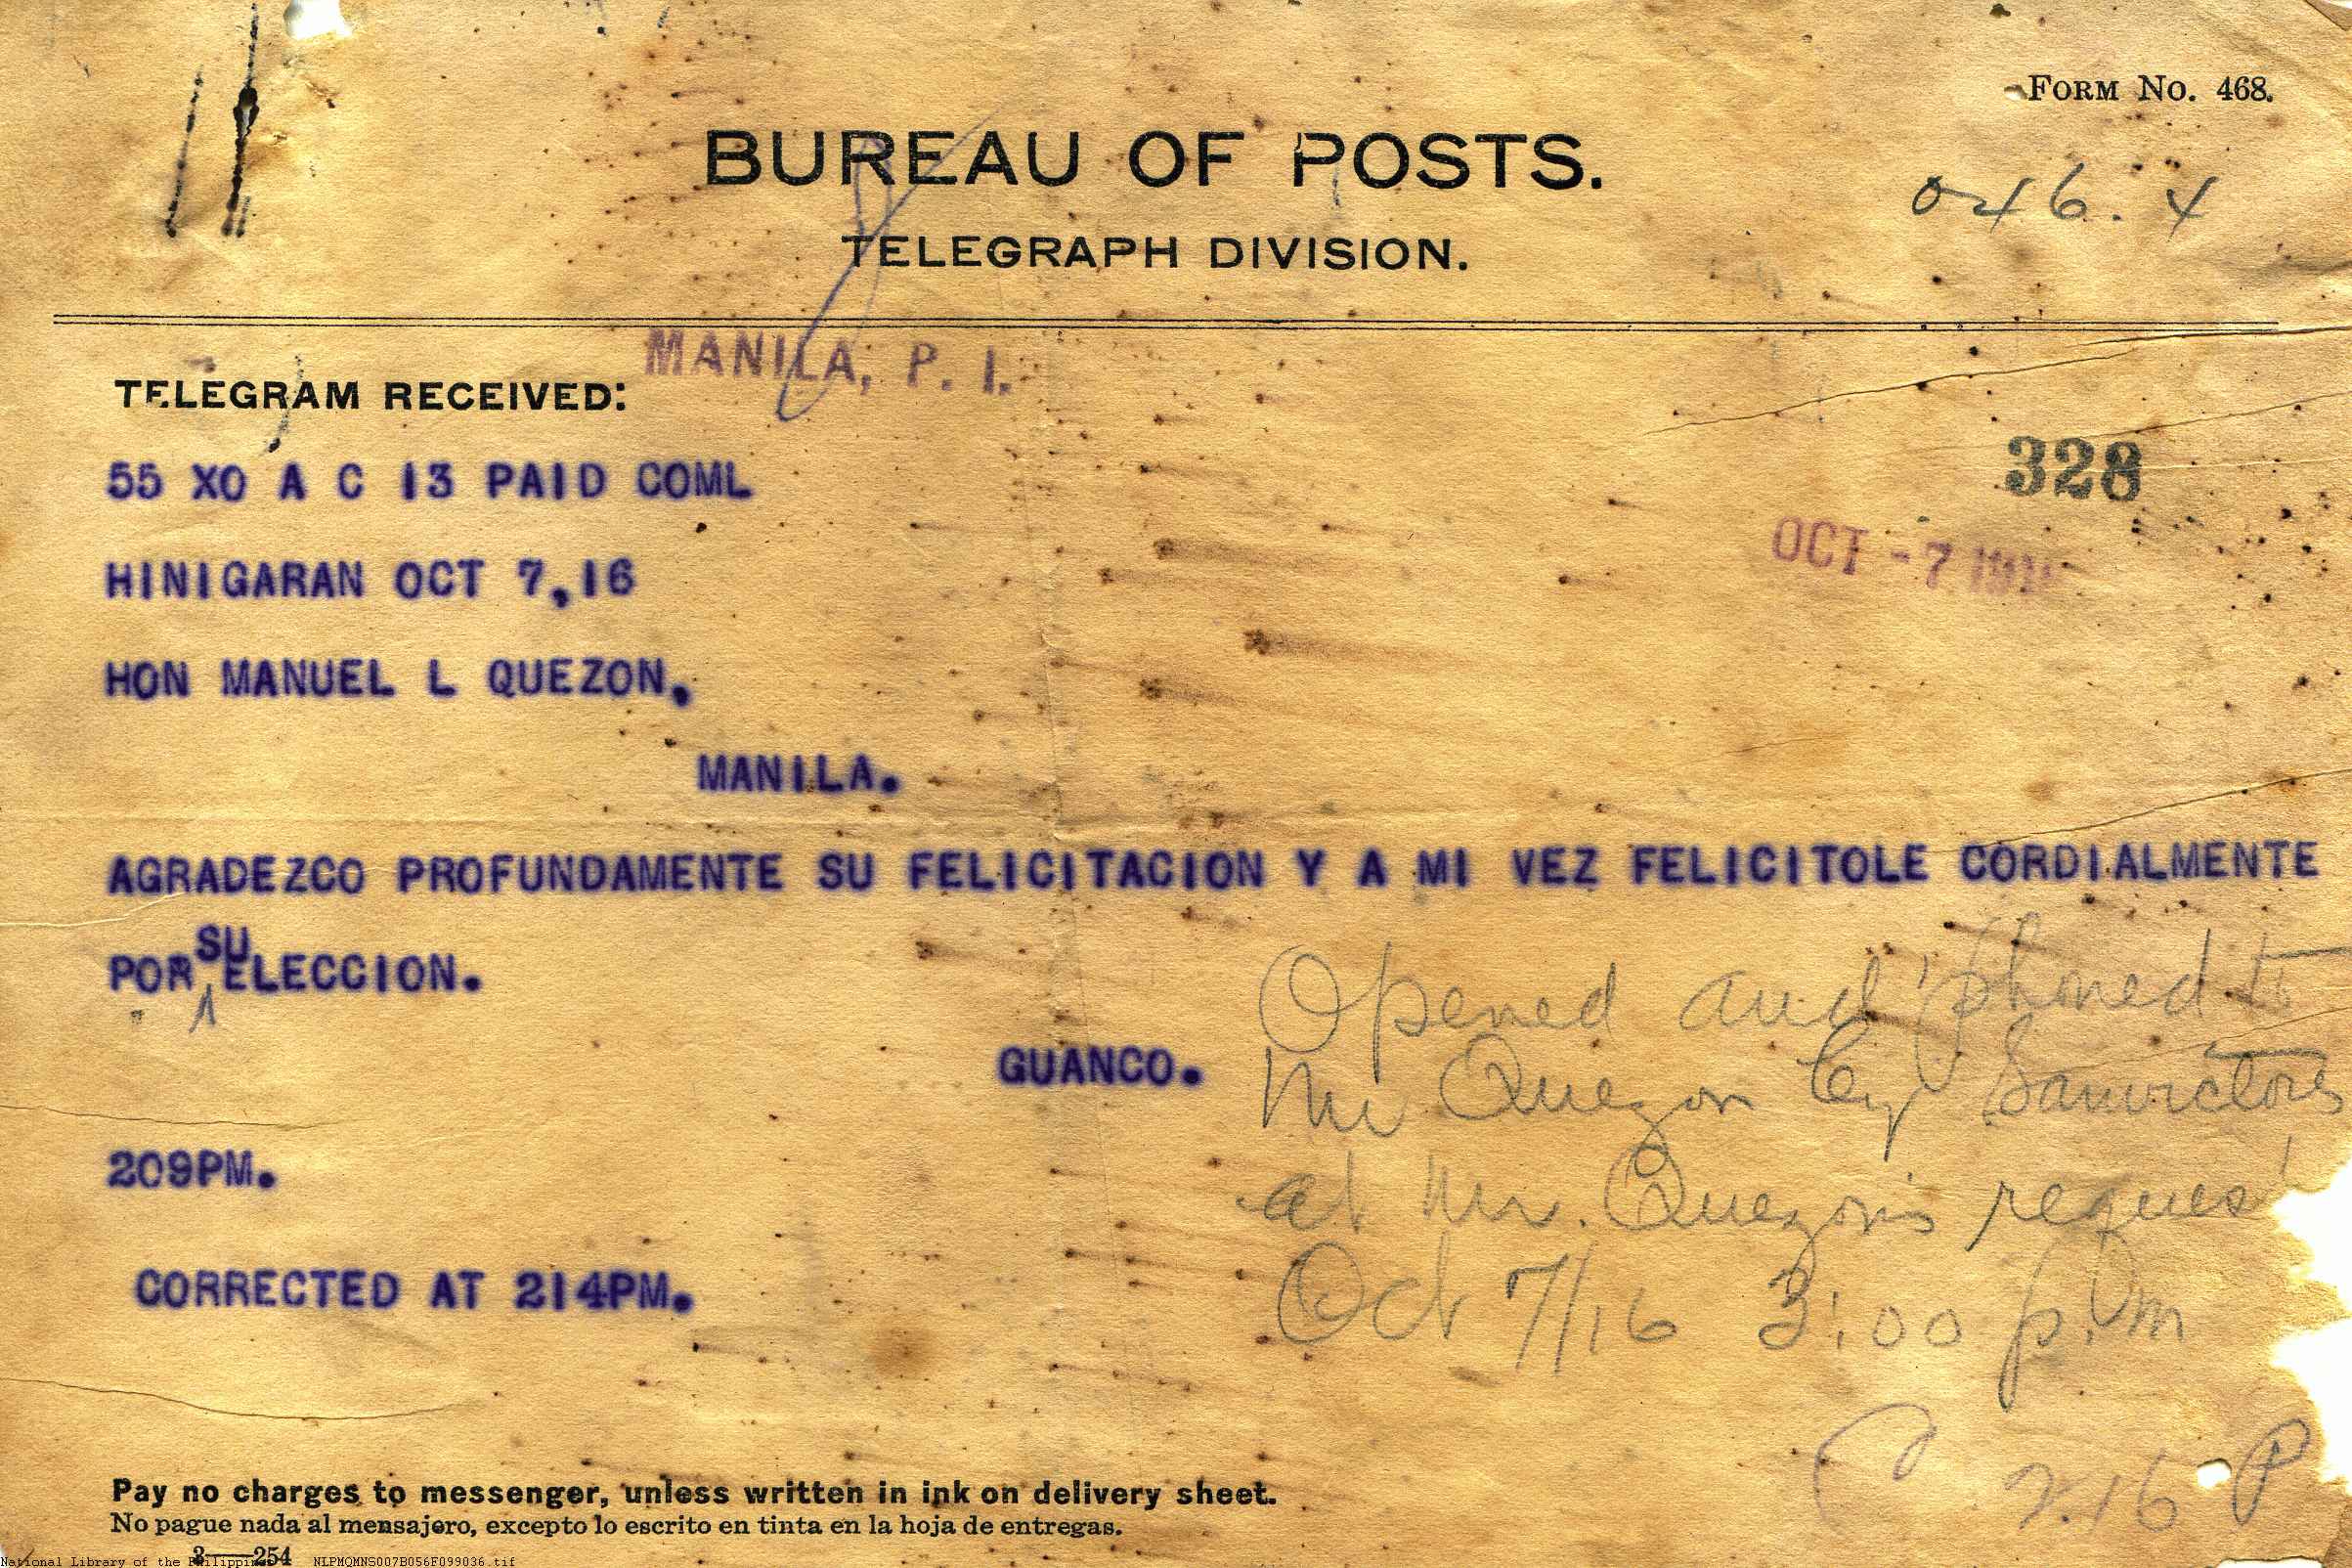 FORM NO. 468.
BUREAU OF POSTS.
TELEGRAPH DIVISION.
MANILA, P. I.
TELEGRAM RECEIVED:
55 XO A C 13 PAID COML
328
OCT - 7
HINIGARAN OCT 7,16
HON MANUEL L QUEZON,
MANILA.
AGRADEZCO PROFUNDAMENTE SU FELICITACION Y A MI VEZ FELICITOLE CORDIALMENTE
POR SU ELECCION.
GUANCO.
209PM.
CORRECTED AT 214PM.
Opened and 'phoned to
Mr Quezon by Sanvictores
at Mr. Quezon's request
Oct 7/16 3:00 p.m
C 2.16 P
Pay no charges to messenger, unless written in ink on delivery sheet.
No pague nada al mensajero, excepto lo escrito en tinta en la hoja de entregas.
3—254
National Library of the Philippines NLPMQMNS007B056F099036.tif